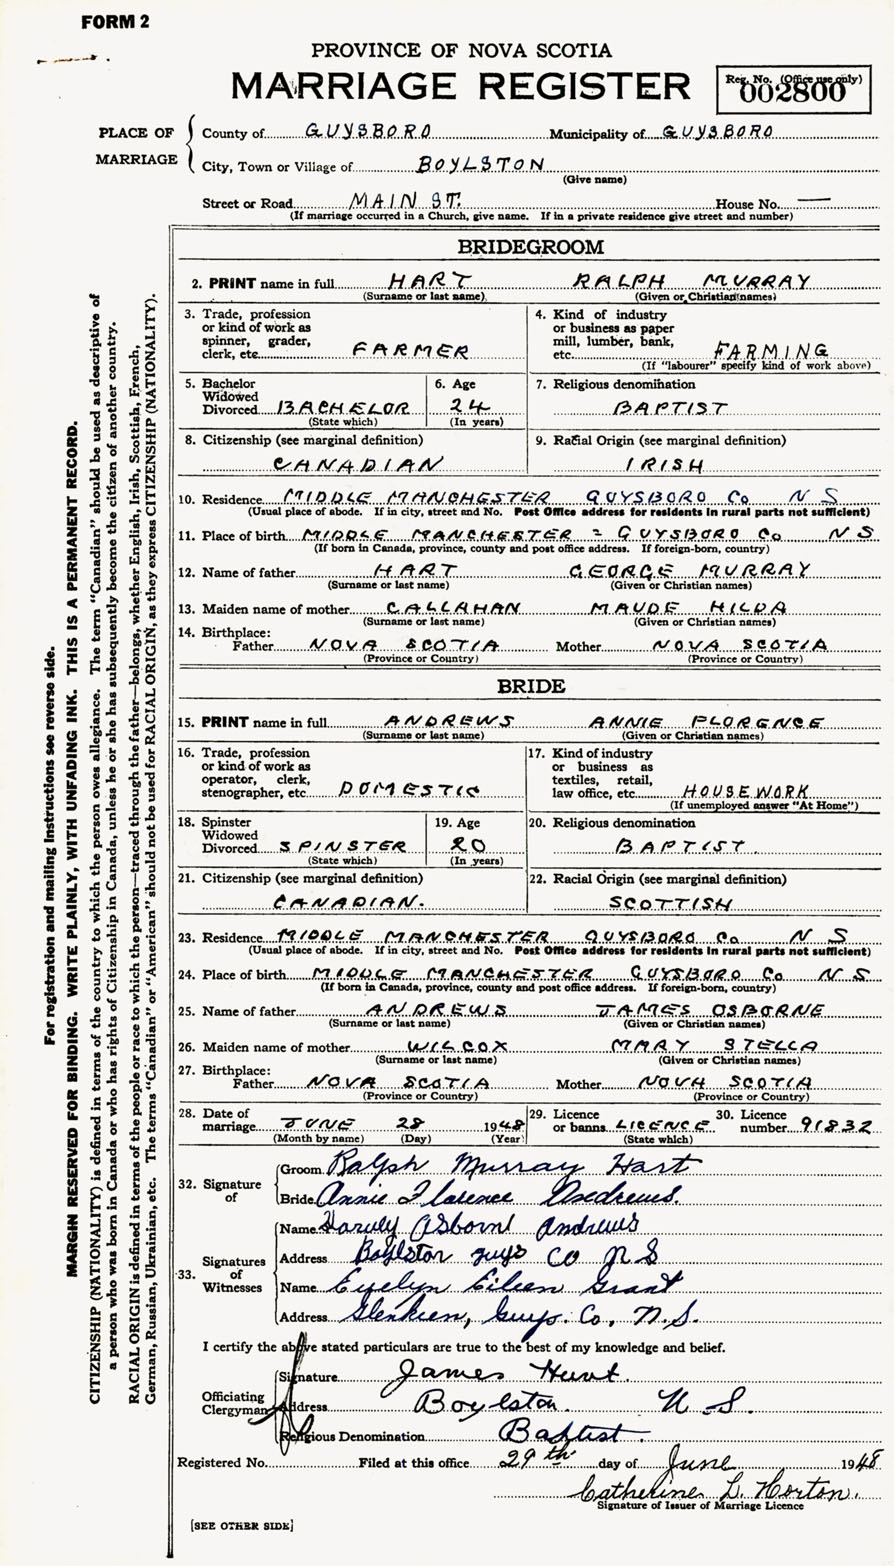 FORM 2
PROVINCE OF NOVA SCOTIA
MARRIAGE REGISTER
Reg. No. (Office use only)
002800
PLACE OF MARRIAGE
County of GUYSBORO Municipality of GUYSBORO
City, Town or Village of BOYLSTON
(Give name)
Street or Road MAIN ST. House No. —
(If marriage occurred in a Church, give name. If in a private residence give street and number)
BRIDEGROOM
2. PRINT name in full HART RALPH MURRAY
(Surname or last name) (Given or Christian names)
3. Trade, profession
or kind of work as
spinner, grader,
clerk, etc. FARMER
4. Kind of industry
or business as paper
mill, lumber, bank,
etc. FARMING
(If "labourer" specify kind of work above)
5. Bachelor
Widowed
Divorced BACHELOR
(State which)
6. Age
24
(In years)
7. Religious denomination
BAPTIST
8. Citizenship (see marginal definition)
CANADIAN
9. Racial Origin (see marginal definition)
IRISH
10. Residence MIDDLE MANCHESTER GUYSBORO Co N S
(Usual place of abode. If in city, street and No. Post Office address for residents in rural parts not sufficient)
11. Place of birth MIDDLE MANCHESTER - GUYSBORO Co N S
(If born in Canada, province, county and post office address. If foreign-born, country)
12. Name of father HART GEORGE MURRAY
(Surname or last name) (Given or Christian names)
13. Maiden name of mother CALLAHAN MAUDE HILDA
(Surname or last name) (Given or Christian names)
14. Birthplace:
Father NOVA SCOTIA Mother NOVA SCOTIA
(Province or Country) (Province or Country)
BRIDE
15. PRINT name in full ANDREWS ANNIE FLORENCE
(Surname or last name) (Given or Christian names)
16. Trade, profession
or kind of work as
operator, clerk,
stenographer, etc. DOMESTIC
17. Kind of industry
or business as
textiles, retail,
law office, etc. HOUSEWORK
(If unemployed answer "At Home")
18. Spinster
Widowed
Divorced SPINSTER
(State which)
19. Age
20
(In years)
20. Religious denomination
BAPTIST
21. Citizenship (see marginal definition)
CANADIAN.
22. Racial Origin (see marginal definition)
SCOTTISH
23. Residence MIDDLE MANCHESTER GUYSBORO Co N S
(Usual place of abode. If in city, street and No. Post Office address for residents in rural parts not sufficient)
24. Place of birth MIDDLE MANCHESTER GUYSBORO Co N S
(If born in Canada, province, county and post office address. If foreign-born, country)
25. Name of father ANDREWS JAMES OSBORNE
(Surname or last name) (Given or Christian names)
26. Maiden name of mother WILCOX MARY STELLA
(Surname or last name) (Given or Christian names)
27. Birthplace:
Father NOVA SCOTIA Mother NOVA SCOTIA
(Province or Country) (Province or Country)
28. Date of
marriage JUNE 28 1948
(Month by name) (Day) (Year)
29. Licence
or banns LICENCE
(State which)
30. Licence
number 91832
32. Signature of
Groom Ralph Murray Hart
Bride Annie Florence Andrews.
33. Signatures of Witnesses
Name Harvey Osborne Andrews
Address Boylston Guys Co N S
Name Evelyn Eileen Grant
Address Glenkeen, Guys. Co, N.S.
I certify the above stated particulars are true to the best of my knowledge and belief.
Officiating Clergyman
Signature James Hunt.
Address Boylston. N S.
Religious Denomination Baptist.
Registered No. Filed at this office 29th day of June 1948
Catherine L. Horton.
Signature of Issuer of Marriage Licence
[SEE OTHER SIDE]
For registration and mailing instructions see reverse side.
MARGIN RESERVED FOR BINDING. WRITE PLAINLY, WITH UNFADING INK. THIS IS A PERMANENT RECORD.
CITIZENSHIP (NATIONALITY) is defined in terms of the country to which the person owes allegiance. The term "Canadian" should be used as descriptive of
a person who was born in Canada or who has rights of Citizenship in Canada, unless he or she has subsequently become the citizen of another country.
RACIAL ORIGIN is defined in terms of the people or race to which the person—traced through the father—belongs, whether English, Irish, Scottish, French,
German, Russian, Ukrainian, etc. The terms "Canadian" or "American" should not be used for RACIAL ORIGIN, as they express CITIZENSHIP (NATIONALITY).